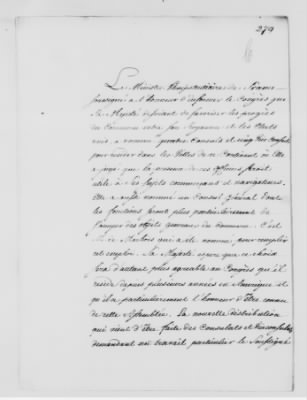 279
Le Ministre Plenipotentiaire de France
soussigné a l'honneur d'informer le Congrès que
Sa Majesté desirant de favoriser les progrès
du Commerce entre son Royaume et les Etats
unis, a nommé quatre Consuls et cinq Vice Consuls
pour resider dans les Villes de ce Continent où Elle
a jugé que la presence de ces officiers seroit
utile à Ses Sujets commerçans et navigateurs.
Elle a aussi nommé un Consul Général dont
les fonctions seront plus particulierement de
s'occuper des objets generaux du Commerce. C'est
M. de Marbois qui a été nommé pour remplir
cet emploi. Sa Majesté espere que ce choix
sera d'autant plus agreable au Congrès qu'il
reside depuis plusieurs années en Amerique et
qu'il a particulierement l'honneur d'être connu
de cette Assemblée. La nouvelle distribution
qui vient d'être faite des Consulats et Viceconsulats
demandant un travail particulier le Soussigné